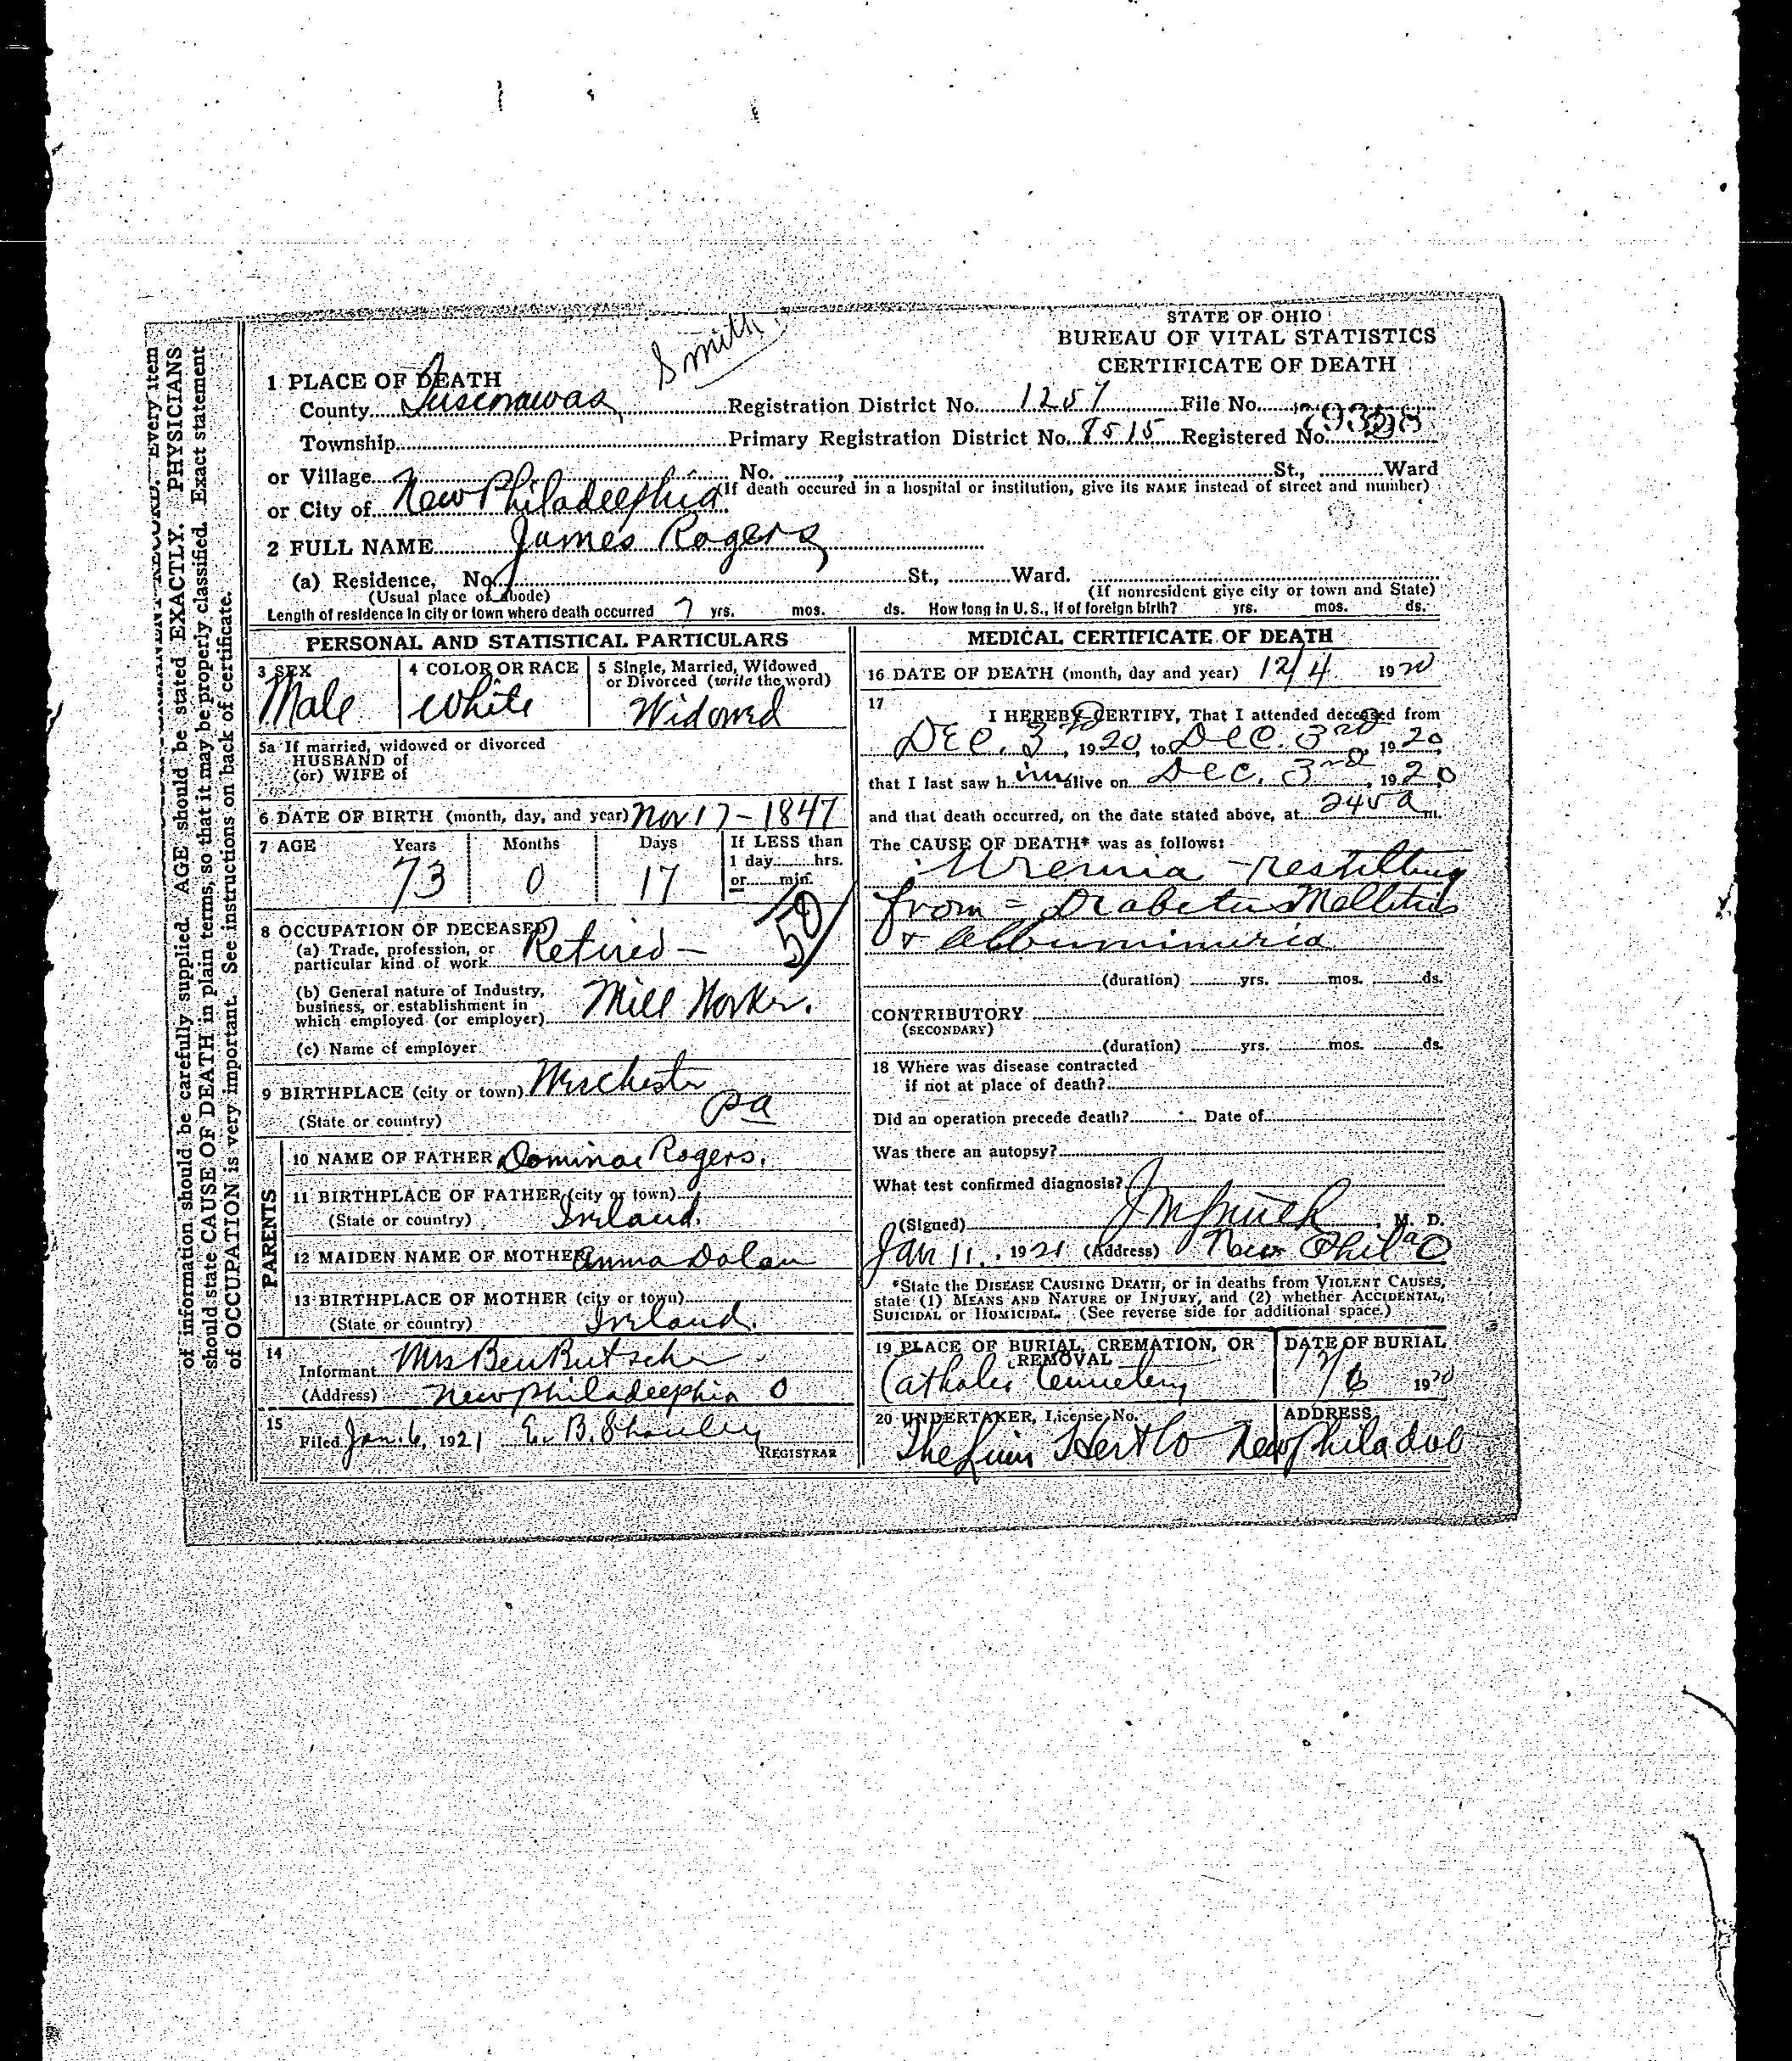 of information should be carefully supplied. AGE should be stated EXACTLY. PHYSICIANS
should state CAUSE OF DEATH in plain terms, so that it may be properly classified. Exact statement
of OCCUPATION is very important. See instructions on back of certificate.
Every item
Smith
STATE OF OHIO
BUREAU OF VITAL STATISTICS
CERTIFICATE OF DEATH
1 PLACE OF DEATH
County Tuscarawas Registration District No. 1257 File No.
Township Primary Registration District No. 8515 Registered No.
or Village No. St., Ward
(If death occured in a hospital or institution, give its NAME instead of street and number)
or City of New Philadelphia
2 FULL NAME James Rogers
(a) Residence, No. St., Ward.
(Usual place of abode) (If nonresident give city or town and State)
Length of residence in city or town where death occurred 7 yrs. mos. ds. How long in U.S., if of foreign birth? yrs. mos. ds.
PERSONAL AND STATISTICAL PARTICULARS
3 SEX 4 COLOR OR RACE 5 Single, Married, Widowed
or Divorced (write the word)
Male White Widowed
5a If married, widowed or divorced
HUSBAND of
(or) WIFE of
6 DATE OF BIRTH (month, day, and year) Nov 17 - 1847
7 AGE Years Months Days If LESS than
1 day hrs.
or min.
73 0 17
50
8 OCCUPATION OF DECEASED
(a) Trade, profession, or
particular kind of work Retired -
(b) General nature of Industry,
business, or establishment in
which employed (or employer) Mill Worker.
(c) Name of employer
9 BIRTHPLACE (city or town)
(State or country) Pa
PARENTS
10 NAME OF FATHER Rogers.
11 BIRTHPLACE OF FATHER (city or town)
(State or country) Ireland.
12 MAIDEN NAME OF MOTHER Anna Dolan
13 BIRTHPLACE OF MOTHER (city or town)
(State or country) Ireland.
14
Informant Mrs Ben
(Address) New Philadelphia O
15
Filed Jan. 6, 1921 E. B. REGISTRAR
MEDICAL CERTIFICATE OF DEATH
16 DATE OF DEATH (month, day and year) 12/4 1920
17
I HEREBY CERTIFY, That I attended deceased from
Dec. 3rd, 1920, to Dec. 3rd, 1920,
that I last saw him alive on Dec. 3rd, 1920
and that death occurred, on the date stated above, at 245 a m.
The CAUSE OF DEATH* was as follows:
Uremia - resulting
from - Diabetus Mellitus
& Albuminuria
(duration) yrs. mos. ds.
CONTRIBUTORY
(SECONDARY)
(duration) yrs. mos. ds.
18 Where was disease contracted
if not at place of death?
Did an operation precede death? Date of
Was there an autopsy?
What test confirmed diagnosis?
(Signed) M. D.
Jan 11, 1921 (Address) New Phila O
*State the DISEASE CAUSING DEATH, or in deaths from VIOLENT CAUSES,
state (1) MEANS AND NATURE OF INJURY, and (2) whether ACCIDENTAL,
SUICIDAL or HOMICIDAL. (See reverse side for additional space.)
19 PLACE OF BURIAL, CREMATION, OR
REMOVAL
DATE OF BURIAL
Catholic Cemetery 12/6 1920
20 UNDERTAKER, License No. ADDRESS
The Linn Hert Co